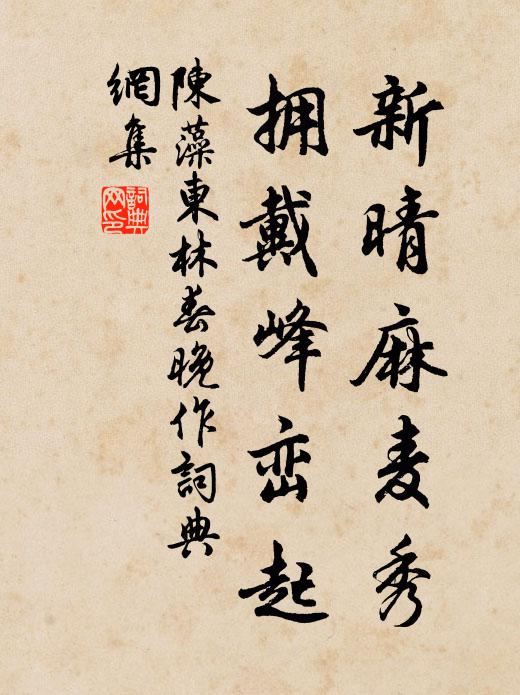 新晴麻麦秀
拥戴峰峦起
陳藻東林春晚作詞典
網集
詞典
网印